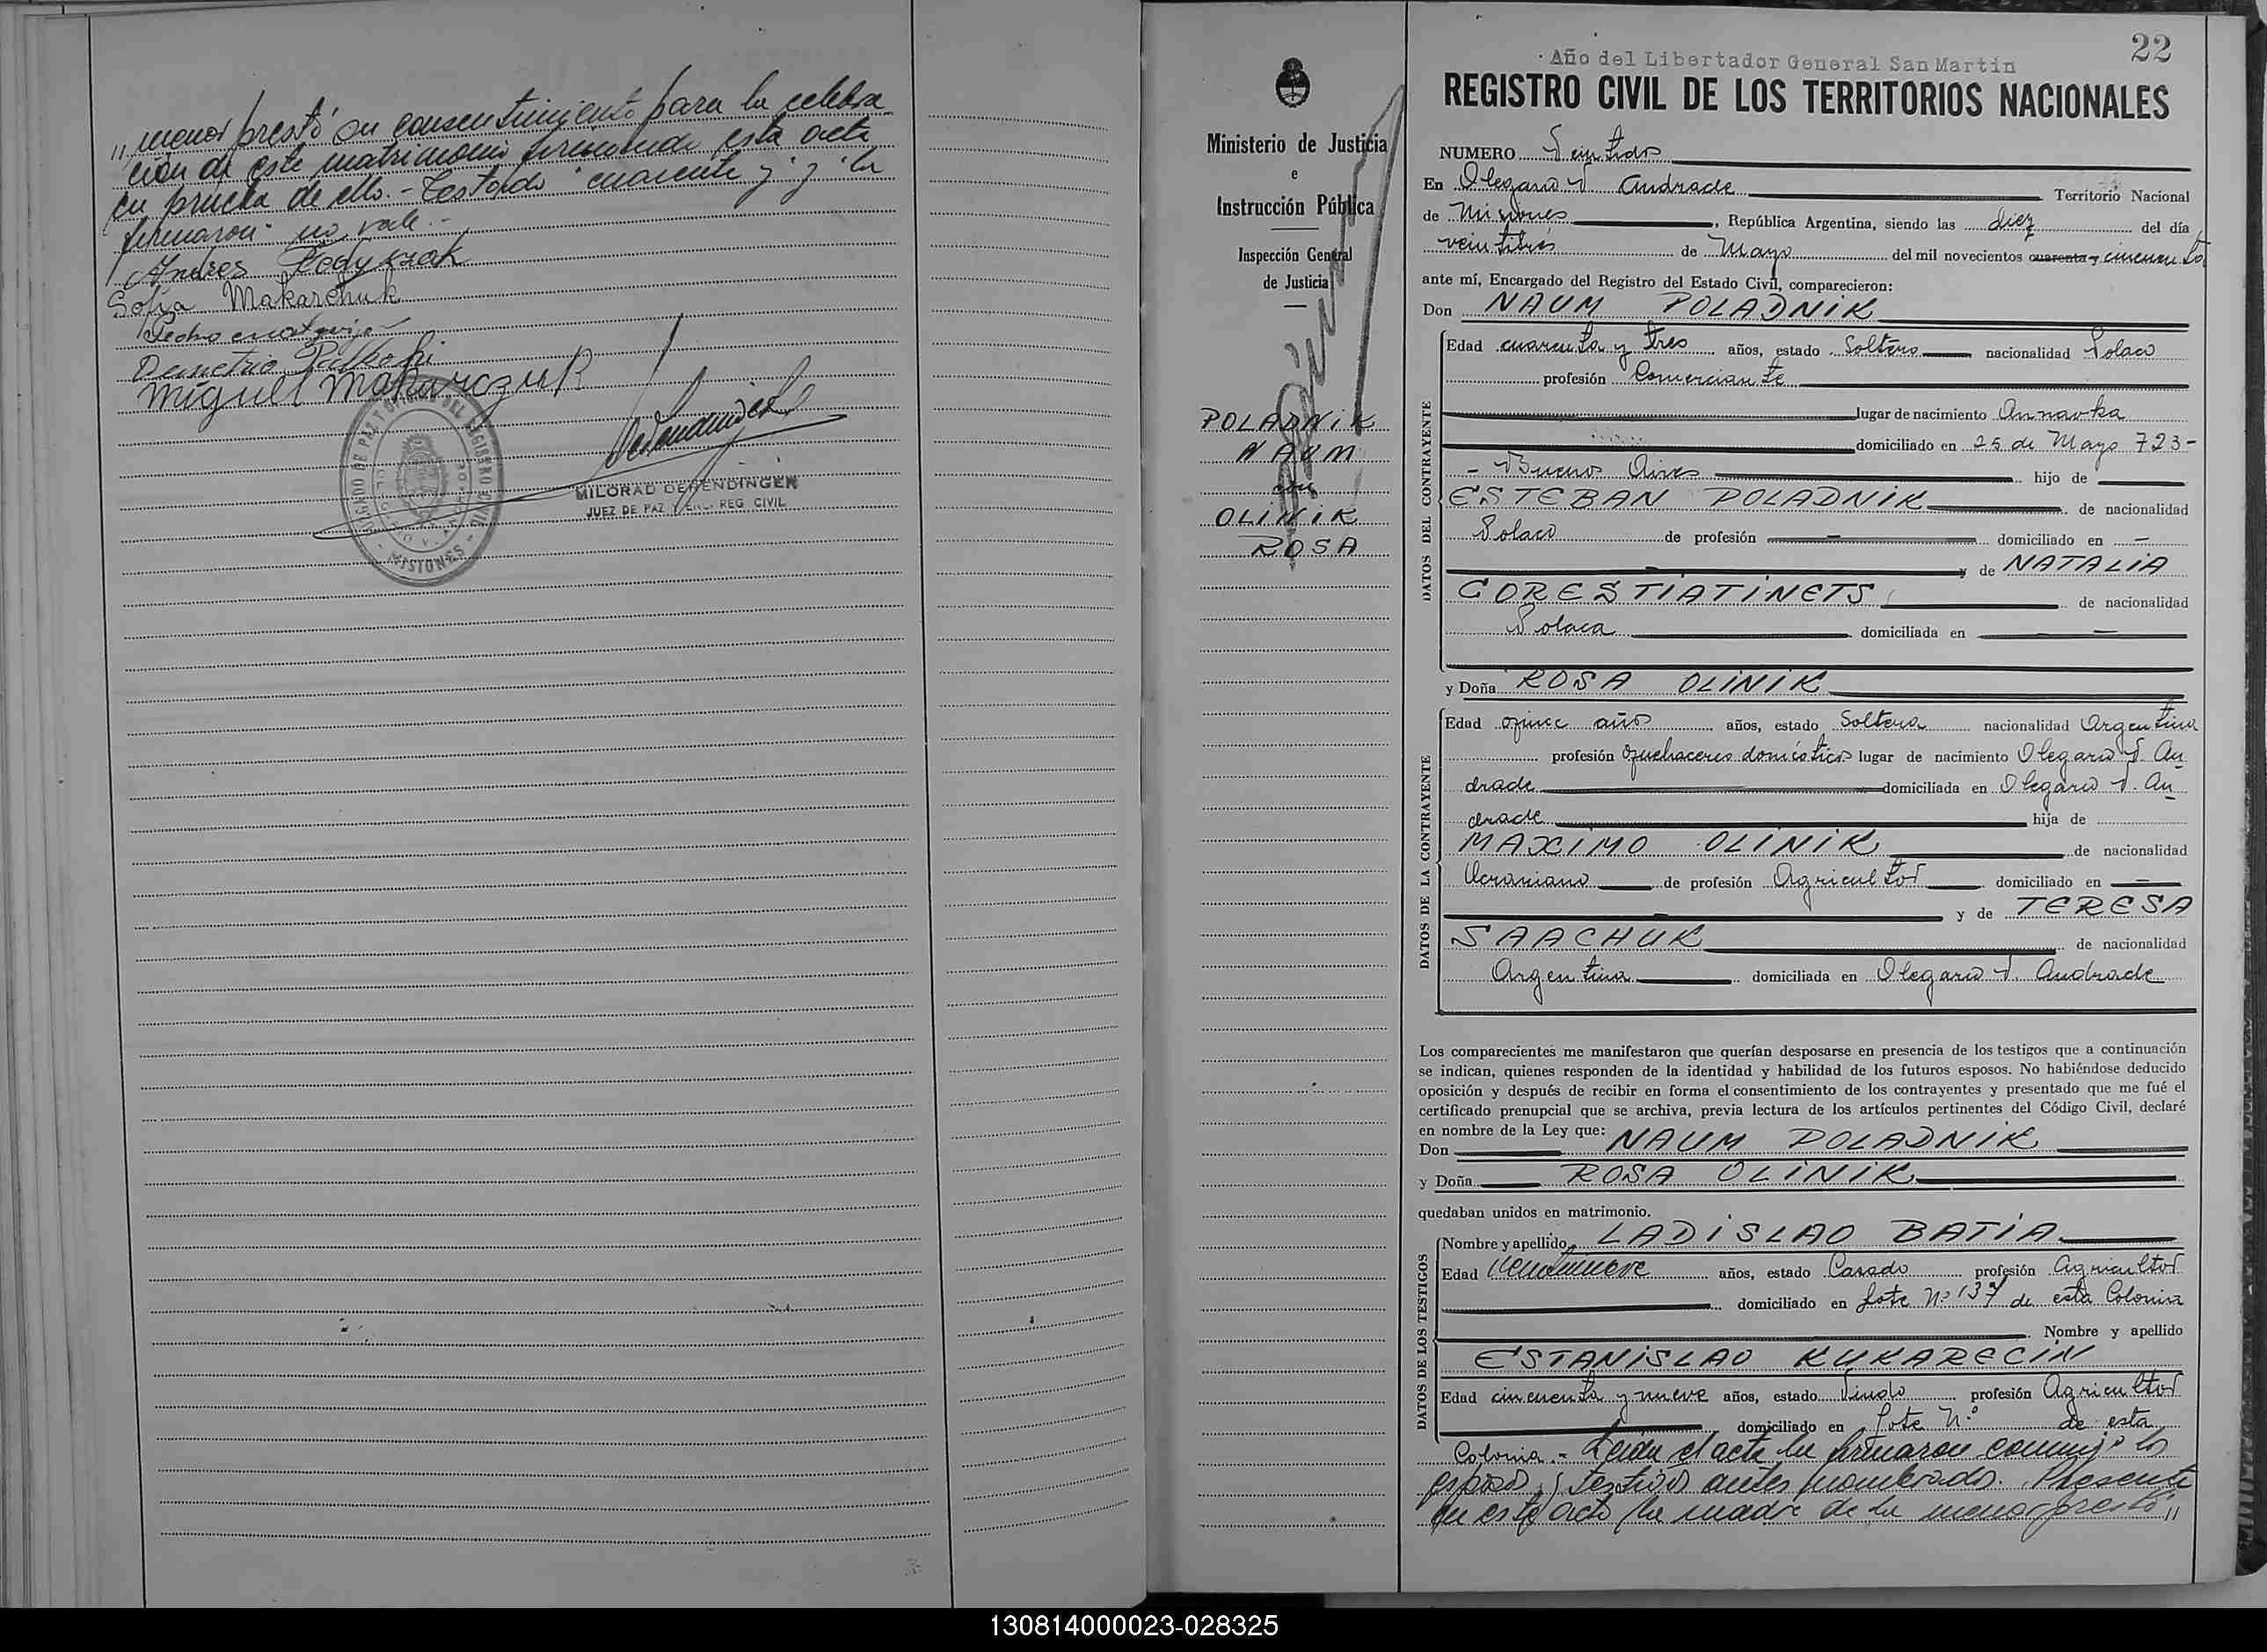 „ menor prestó su consentimiento para la celebra
ción de este matrimonio firmando esta acta
en prueba de ello.- Testado "cuarenta y" y "la
firmaron" no vale.-
Andres
Sofia Makarchuk
Pedro
Demetrio
Miguel Makarczuk
JUZGADO DE PAZ
REGISTRO CIVIL
- MISIONES -
MILORAD DERENDINGER
JUEZ DE PAZ Y ENC. REG CIVIL
Ministerio de Justicia
e
Instrucción Pública
Inspección General
de Justicia
POLADNIK
NAUM
con
OLINIK
ROSA
22
Año del Libertador General San Martin
REGISTRO CIVIL DE LOS TERRITORIOS NACIONALES
NUMERO Veintidos
En Olegario V. Andrade Territorio Nacional
de Misiones, República Argentina, siendo las diez del día
veintitrés de Mayo del mil novecientos cuarenta y cincuenta
ante mí, Encargado del Registro del Estado Civil, comparecieron:
Don NAUM POLADNIK
DATOS DEL CONTRAYENTE
Edad cuarenta y tres años, estado Soltero nacionalidad Polaco
profesión Comerciante
lugar de nacimiento Annavka
domiciliado en 25 de Mayo 723-
- Buenos Aires hijo de
ESTEBAN POLADNIK de nacionalidad
Polaco de profesión domiciliado en
y de NATALIA
CORESTIATINETS de nacionalidad
Polaca domiciliada en
y Doña ROSA OLINIK
DATOS DE LA CONTRAYENTE
Edad quince años años, estado Soltera nacionalidad Argentina
profesión quehaceres domésticos lugar de nacimiento Olegario V. An
drade domiciliada en Olegario V. An
drade hija de
MAXIMO OLINIK de nacionalidad
Ucraniano de profesión Agricultor domiciliado en
y de TERESA
SAACHUK de nacionalidad
Argentina domiciliada en Olegario V. Andrade
Los comparecientes me manifestaron que querían desposarse en presencia de los testigos que a continuación
se indican, quienes responden de la identidad y habilidad de los futuros esposos. No habiéndose deducido
oposición y después de recibir en forma el consentimiento de los contrayentes y presentado que me fué el
certificado prenupcial que se archiva, previa lectura de los artículos pertinentes del Código Civil, declaré
en nombre de la Ley que:
Don NAUM POLADNIK
y Doña ROSA OLINIK
quedaban unidos en matrimonio.
DATOS DE LOS TESTIGOS
Nombre y apellido LADISLAO BATIA
Edad veintinueve años, estado Casado profesión Agricultor
domiciliado en Lote Nº 137 de esta Colonia
Nombre y apellido
ESTANISLAO KUKARECIN
Edad cincuenta y nueve años, estado Viudo profesión Agricultor
domiciliado en Lote N.º de esta
Colonia.- Leida el acta la firmaron conmigo los
esposos y testigos antes nombrados. Presente
en este acto la madre de la menor prestó „
130814000023-028325